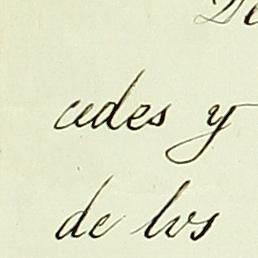 De
cedes y
de los